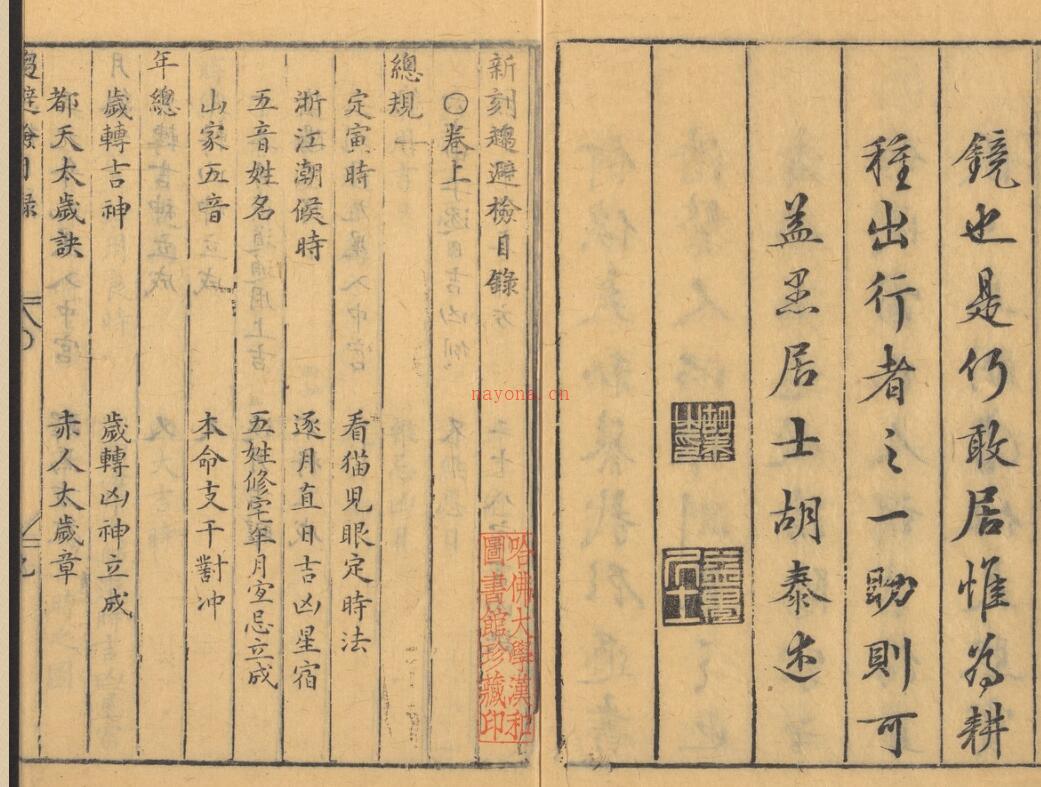 鏡也是何敢居惟為耕
種出行者之一助則可
盖愚居士胡泰述
新刻趨避檢目錄
○卷上
總規
定寅時 看猫児眼定時法
浙江潮候時 逐月直日吉凶星宿
五音姓名 五姓修宅年月宜忌立成
山家五音 本命支干對冲
年總
歲轉吉神 歲轉凶神立成
都天太歲訣 赤人太歲章
趨避檢目錄
哈佛大學漢和
圖書館珍藏印
nayona.cn